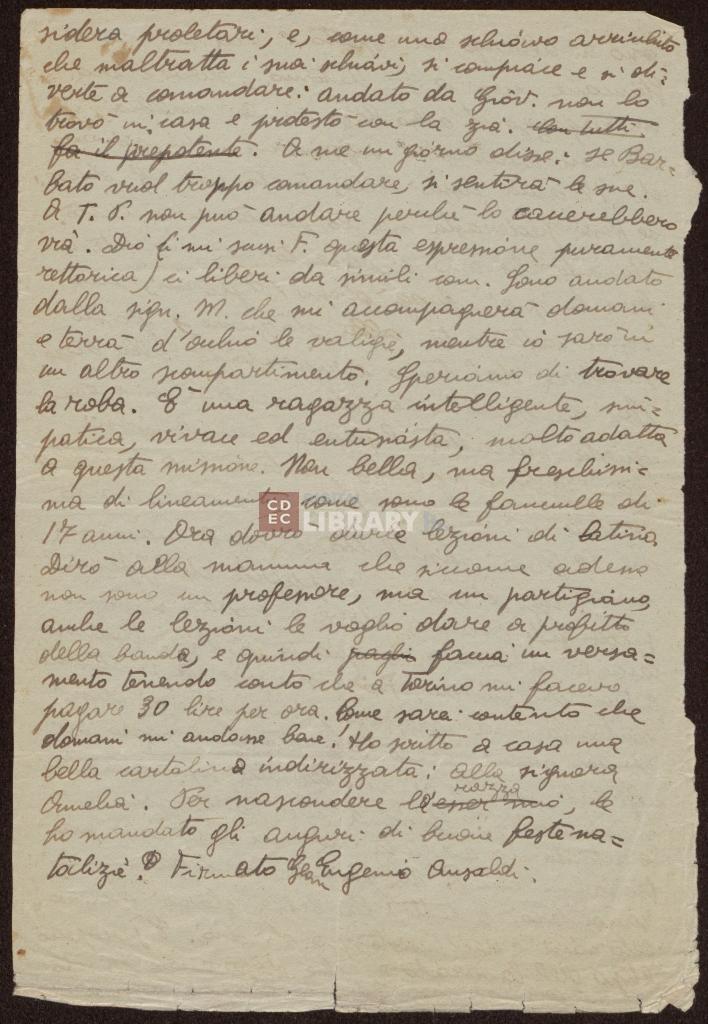 sidera proletari, e, come uno schiavo arricchito
che maltratta i suoi schiavi, si compiace e si di=
verte a comandare: andato da Giov. non lo
trovò in casa e protestò con la zia. Con tutti
fa il prepotente. A me un giorno disse: se Bar=
bato vuol troppo comandare, si sentirà le sue.
A T. P. non può andare perché lo caccerebbero
via. Dio (e mi scusi F. questa espressione puramente
rettorica) ci liberi da simili com. Sono andato
dalla sign. M. che mi accompagnerà domani
e terrà d'occhio le valigie, mentre io sarò in
un altro scompartimento. Speriamo di trovare
la roba. È una ragazza intelligente, sim=
patica, vivace ed entusiasta, molto adatta
a questa missione. Non bella, ma freschissi=
ma di lineamenti come sono le fanciulle di
17 anni. Ora dovrò darle lezioni di latino.
Dirò alla mamma che siccome adesso
non sono un professore, ma un partigiano,
anche le lezioni le voglio dare a profitto
della banda, e quindi paghi faccia un versa=
mento tenendo conto che a Torino mi facevo
pagare 30 lire per ora. Come sarei contento che
domani mi andasse bene! Ho scritto a casa una
bella cartolina indirizzata: alla signora
razza
Amelia. Per nascondere l'esser mio, le
ho mandato gli auguri di buone feste na=
talizie. Firmato Gian Eugenio Ansaldi.
CDEC LIBRARY